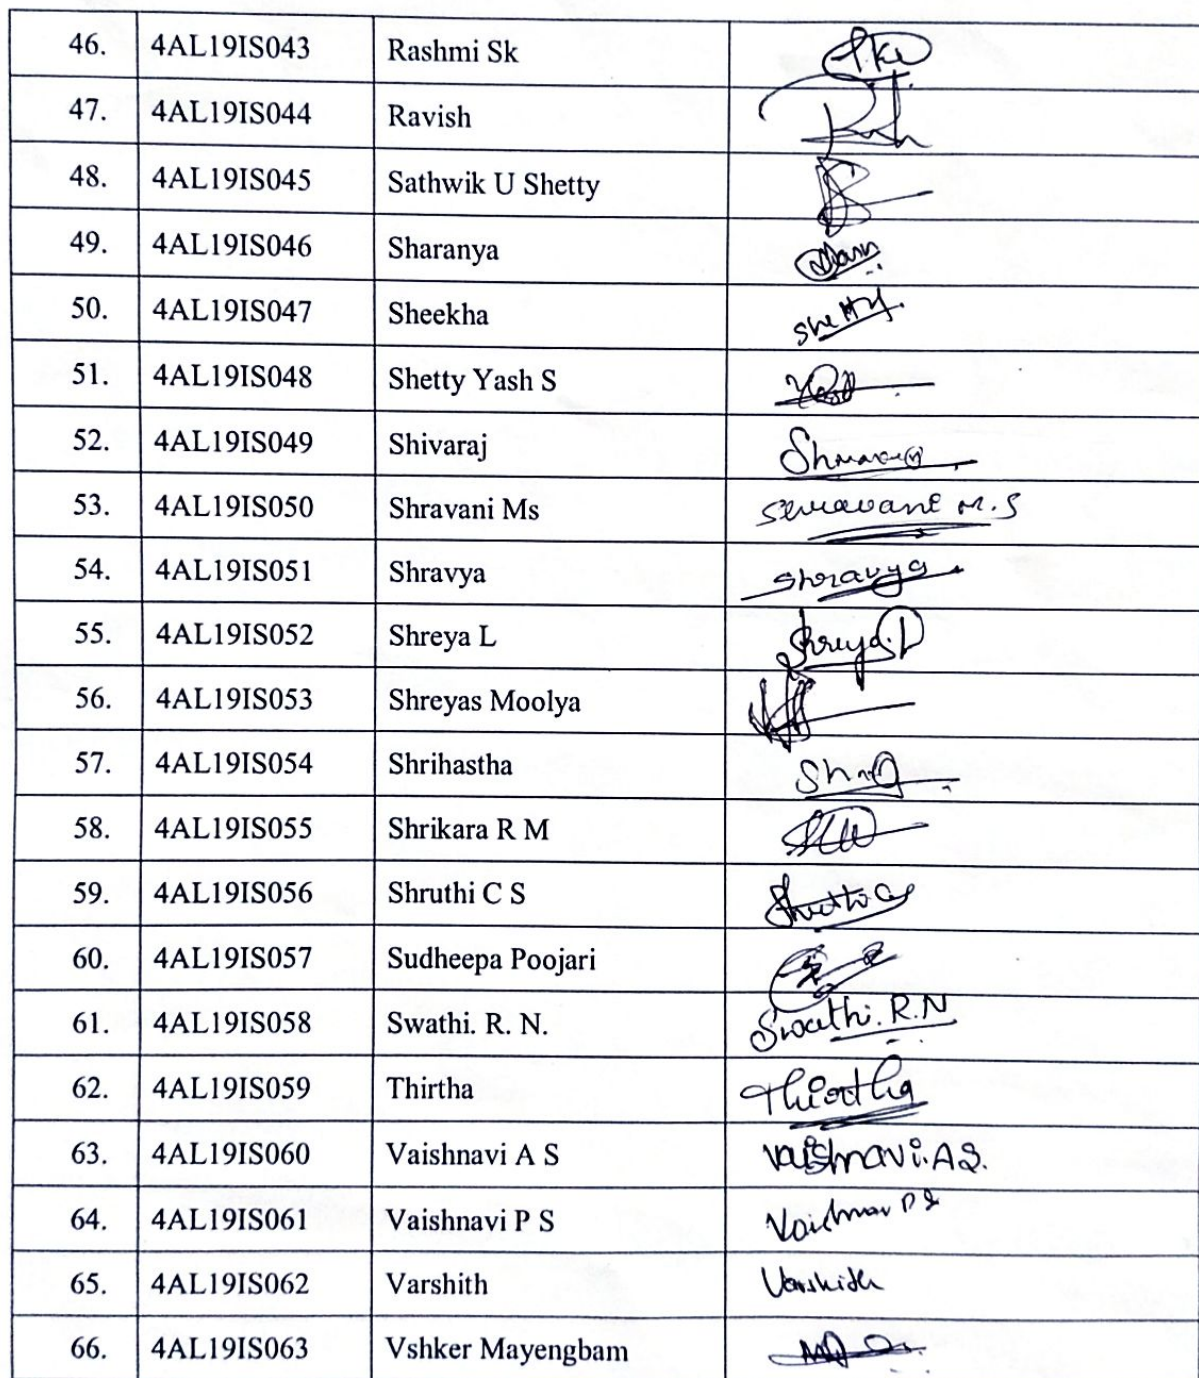 46. 4AL19IS043 Rashmi Sk
47. 4AL19IS044 Ravish
48. 4AL19IS045 Sathwik U Shetty
49. 4AL19IS046 Sharanya
50. 4AL19IS047 Sheekha Shetty.
51. 4AL19IS048 Shetty Yash S
52. 4AL19IS049 Shivaraj
53. 4AL19IS050 Shravani Ms Shravani M.S
54. 4AL19IS051 Shravya Shravya
55. 4AL19IS052 Shreya L Shreya.L
56. 4AL19IS053 Shreyas Moolya
57. 4AL19IS054 Shrihastha
58. 4AL19IS055 Shrikara R M
59. 4AL19IS056 Shruthi C S Shruthi CS
60. 4AL19IS057 Sudheepa Poojari
61. 4AL19IS058 Swathi. R. N. Swathi. R.N
62. 4AL19IS059 Thirtha Thirtha
63. 4AL19IS060 Vaishnavi A S Vaishnavi.A S.
64. 4AL19IS061 Vaishnavi P S Vaishnavi P S
65. 4AL19IS062 Varshith Varshith
66. 4AL19IS063 Vshker Mayengbam